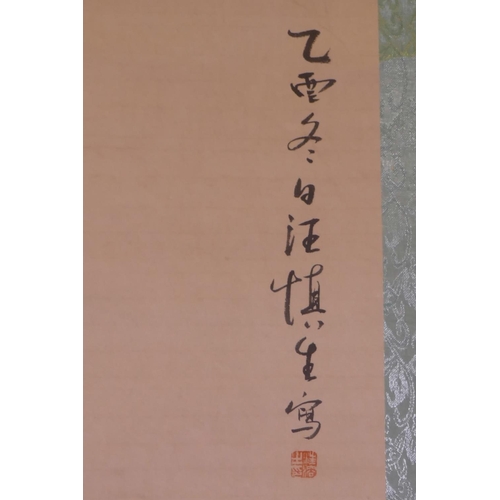 乙酉冬日汪慎生寫